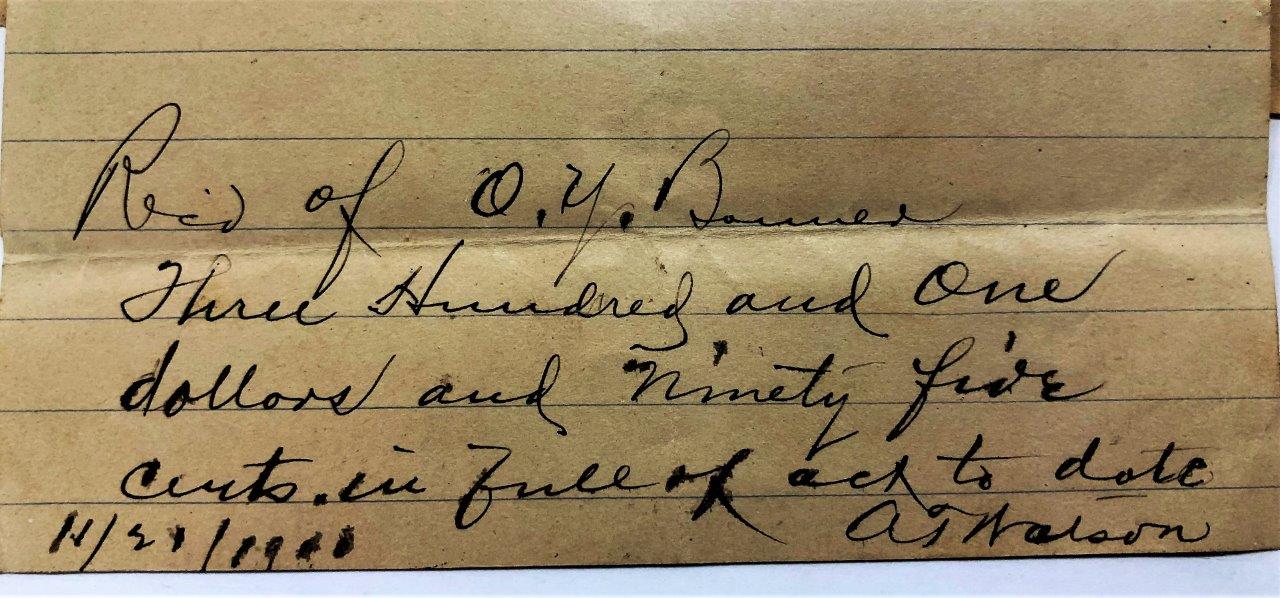 Rec'd of O. Y. Bonner
Three Hundred and One
dollars and Ninety five
cents. in full of act to date
A T Watson